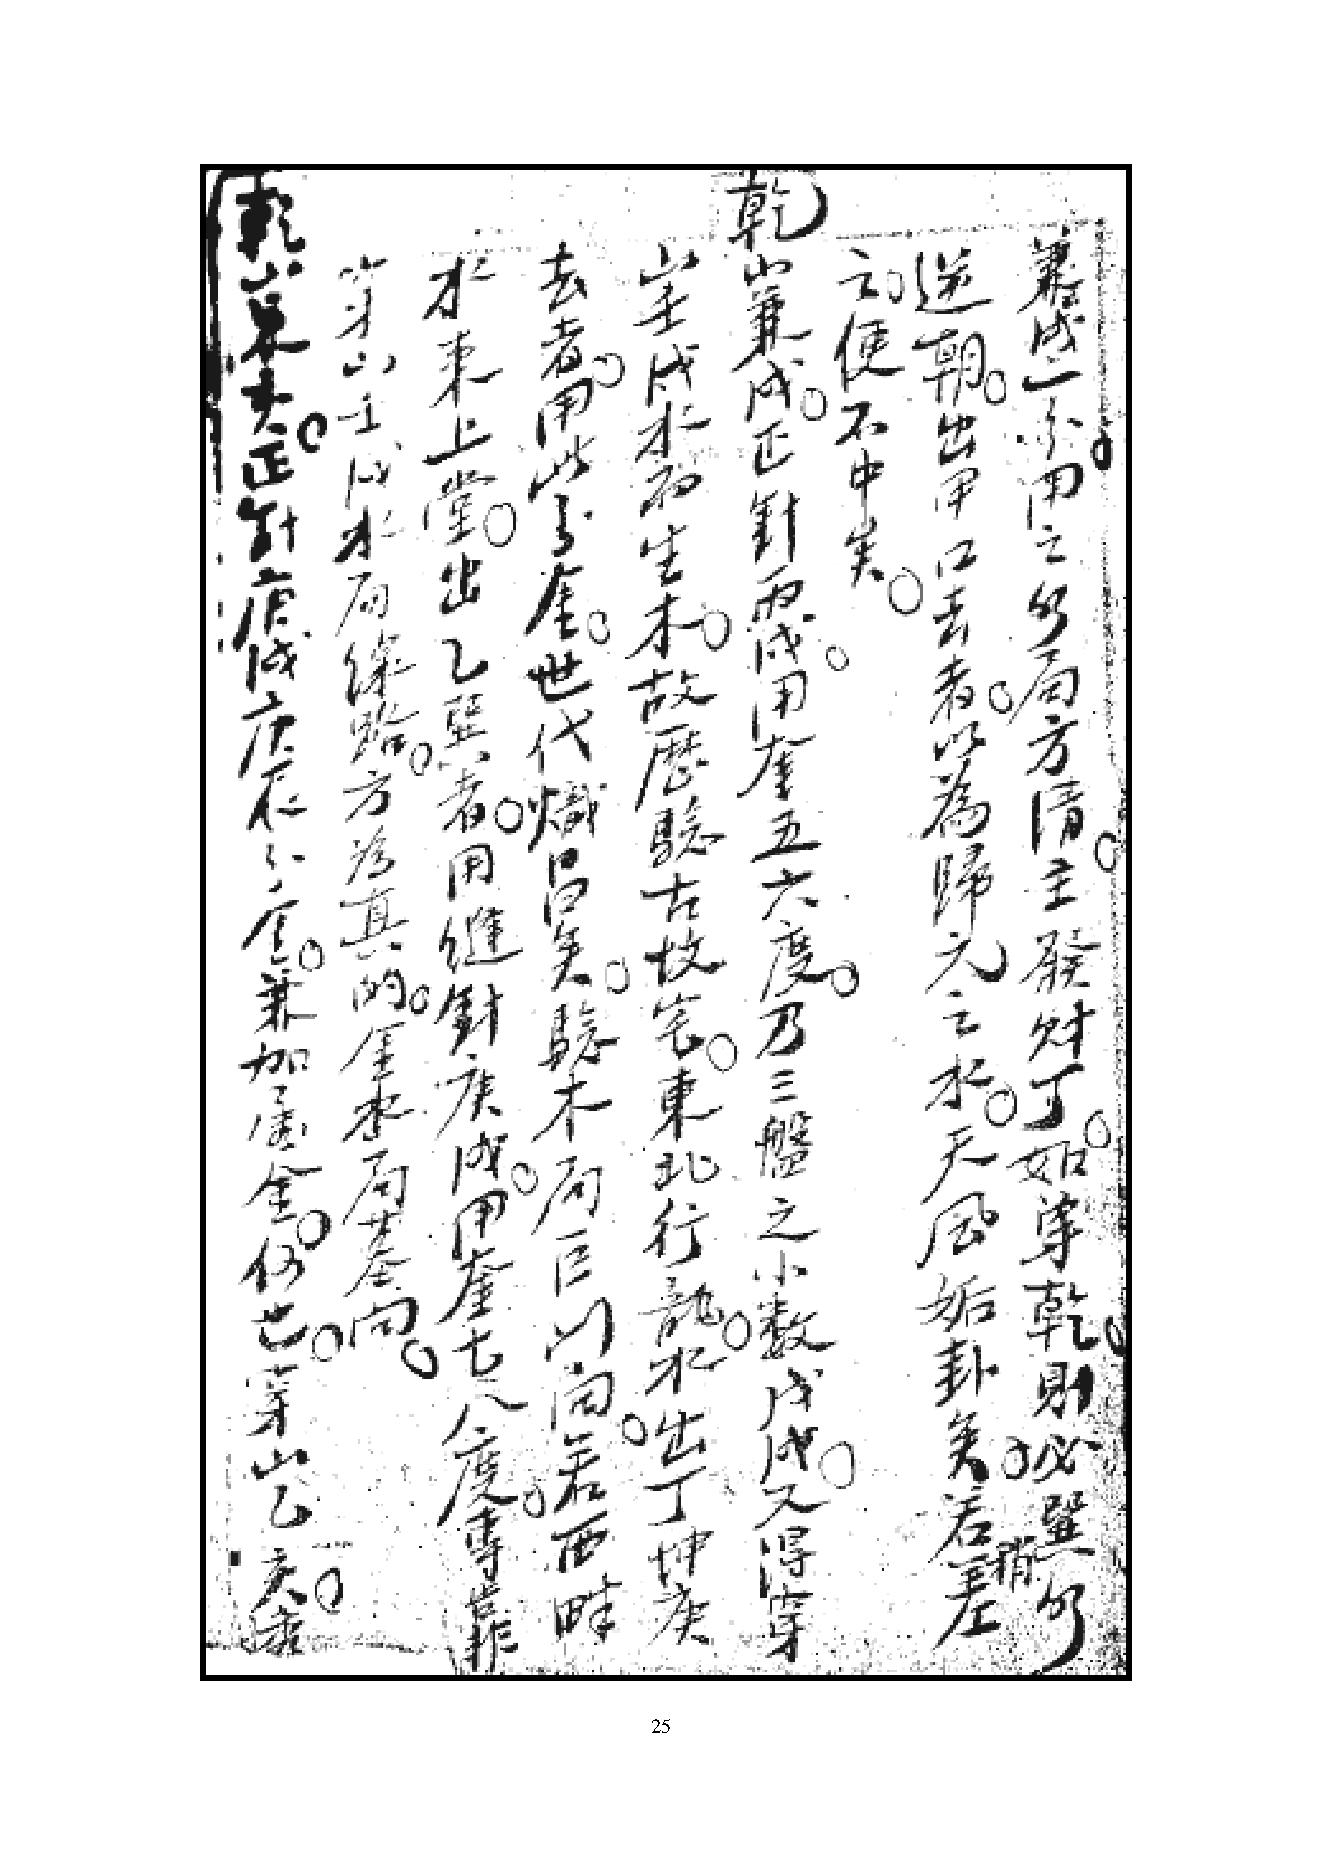 兼戌一分用之的局方清主發財丁如穿乾則必巽的
逆朝出甲口去者以為歸元之水天風姤卦矣若稍差
之便不中矣
乾山兼戌正針丙戌用奎五六度乃三盤之小數戊戌又得穿
山壬戌水初生木故歷驗古坟宅東北行龍水出丁坤庚
去者用此分金世代熾昌矣驗木局巨門向若西畔
水來上堂出乙巽者用縫針庚戌甲奎七八度專靠
穿山壬戌水局線路方為真的金水局葬向
乾山兼亥正針庚戌庚辰分金兼加金仍也穿山乙亥
25